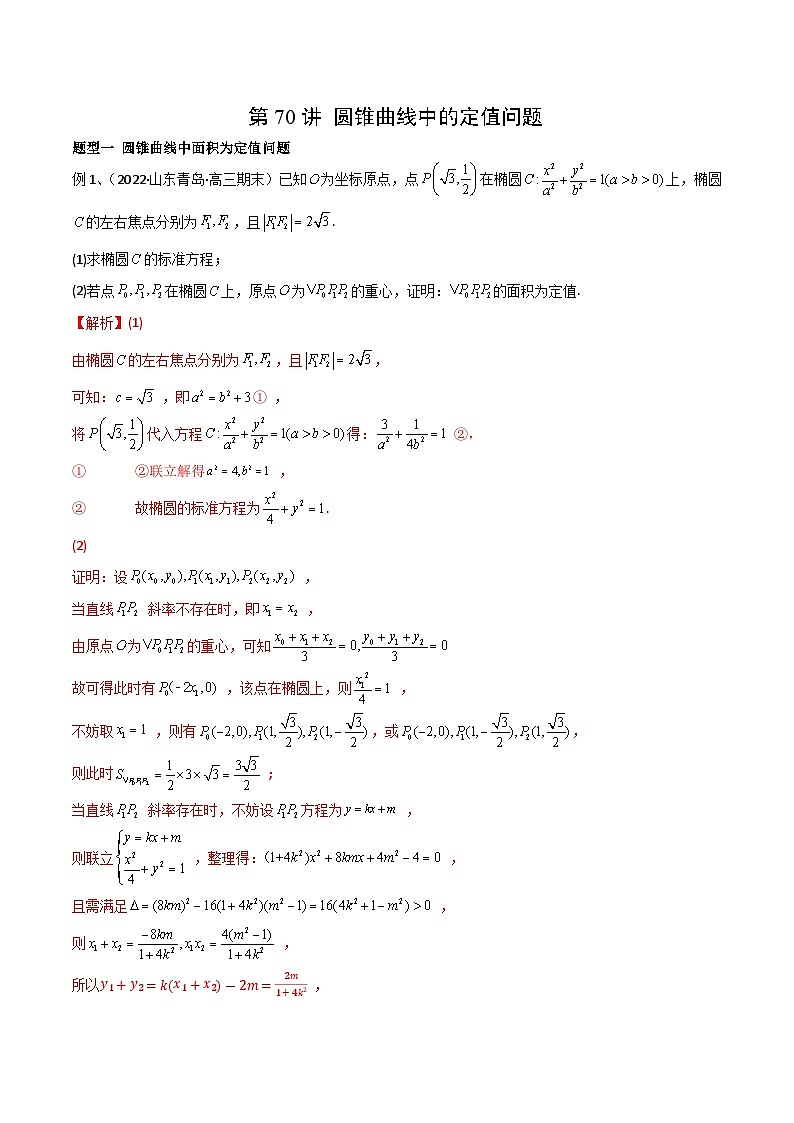 第 70 讲 圆锥曲线中的定值问题
题型一 圆锥曲线中面积为定值问题
例 1、（2022·山东青岛·高三期末）已知 O 为坐标原点，点 P(√3, 1/2) 在椭圆 C : x²/a² + y²/b² = 1(a > b > 0) 上，椭圆
C 的左右焦点分别为 F₁, F₂ ，且 |F₁F₂| = 2√3 .
(1)求椭圆 C 的标准方程；
(2)若点 P₀, P₁, P₂ 在椭圆 C 上，原点 O 为 ∨P₀P₁P₂ 的重心，证明：∨P₀P₁P₂ 的面积为定值.
【解析】(1)
由椭圆 C 的左右焦点分别为 F₁, F₂ ，且 |F₁F₂| = 2√3 ，
可知：c = √3 ，即 a² = b² + 3① ，
将 P(√3, 1/2) 代入方程 C : x²/a² + y²/b² = 1(a > b > 0) 得：3/a² + 1/4b² = 1 ②，
① ②联立解得 a² = 4, b² = 1 ，
② 故椭圆的标准方程为 x²/4 + y² = 1 .
(2)
证明：设 P₀(x₀, y₀), P₁(x₁, y₁), P₂(x₂, y₂) ，
当直线 P₁P₂ 斜率不存在时，即 x₁ = x₂ ，
由原点 O 为 ∨P₀P₁P₂ 的重心，可知 (x₀ + x₁ + x₂)/3 = 0, (y₀ + y₁ + y₂)/3 = 0
故可得此时有 P₀(-2x₁, 0) ，该点在椭圆上，则 x₁²/4 = 1 ，
不妨取 x₁ = 1 ，则有 P₀(-2, 0), P₁(1, √3/2), P₂(1, -√3/2) ，或 P₀(-2, 0), P₁(1, -√3/2), P₂(1, √3/2) ，
则此时 S∨P₀P₁P₂ = 1/2 × 3 × √3 = 3√3/2 ；
当直线 P₁P₂ 斜率存在时，不妨设 P₁P₂ 方程为 y = kx + m ，
则联立 { y = kx + m x²/4 + y² = 1 ，整理得：(1+4k²)x² + 8kmx + 4m² - 4 = 0 ，
且需满足 Δ = (8km)² - 16(1 + 4k²)(m² - 1) = 16(4k² + 1 - m²) > 0 ，
则 x₁ + x₂ = -8km/(1 + 4k²), x₁x₂ = 4(m² - 1)/(1 + 4k²) ，
所以 y₁ + y₂ = k(x₁ + x₂) − 2m = 2m/(1 + 4k²) ，